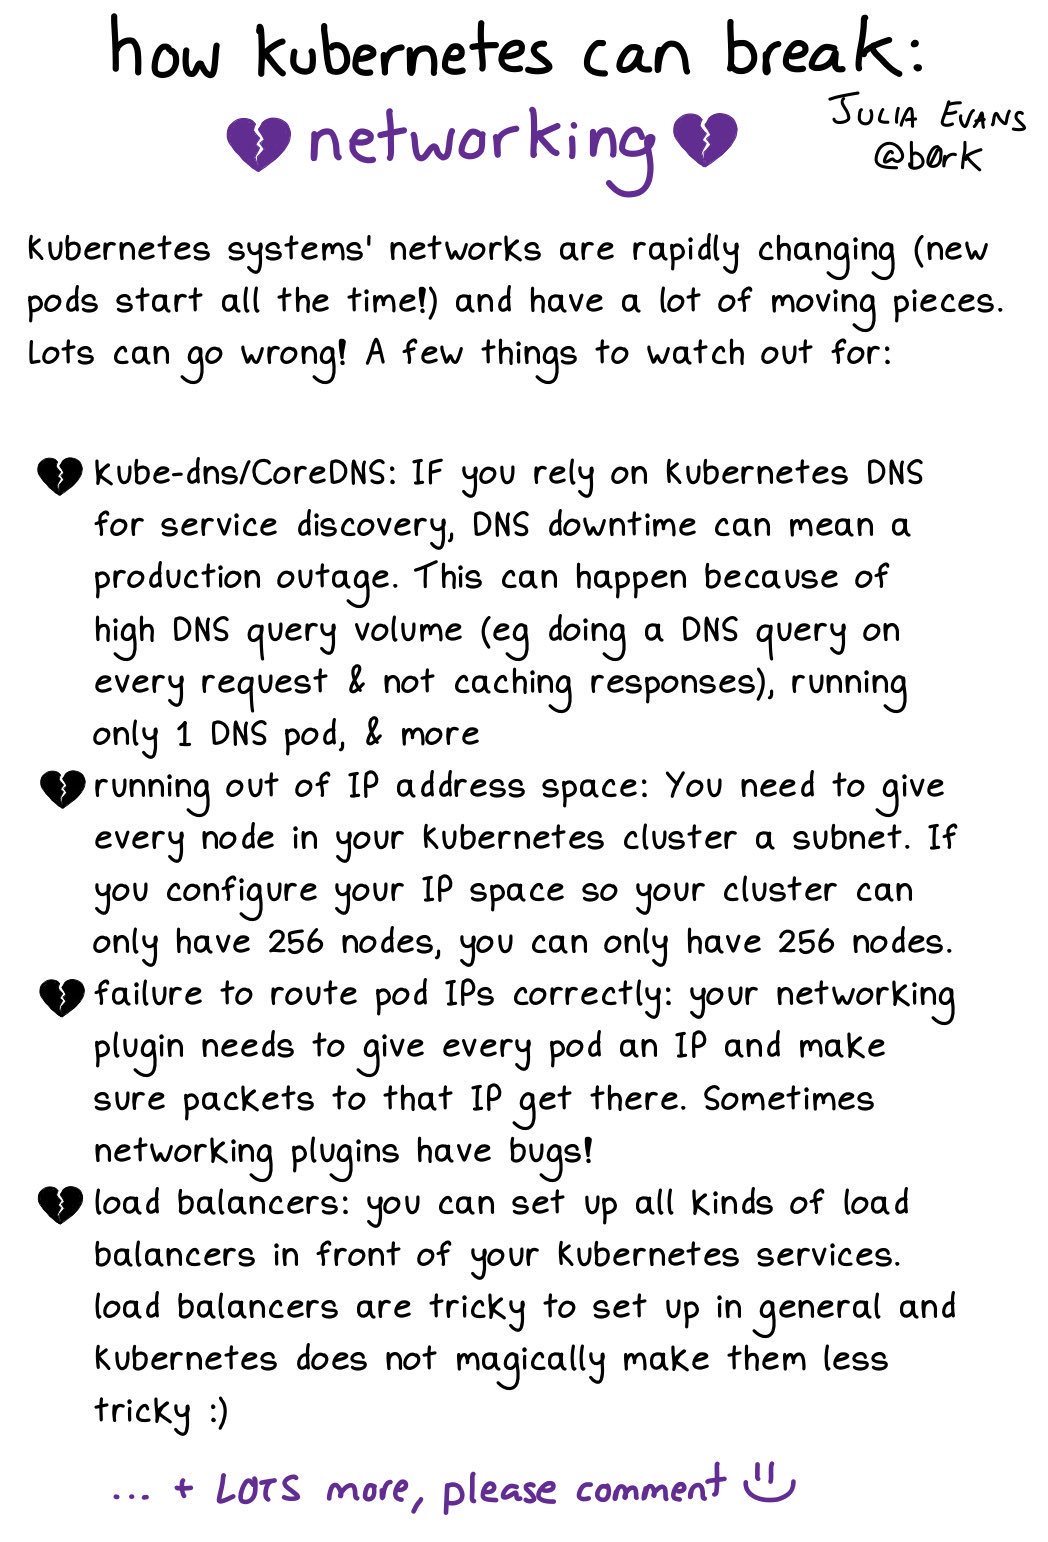 how kubernetes can break:
networking
JULIA EVANS
@b0rk
Kubernetes systems' networks are rapidly changing (new
pods start all the time!) and have a lot of moving pieces.
Lots can go wrong! A few things to watch out for:
kube-dns/CoreDNS: IF you rely on Kubernetes DNS
for service discovery, DNS downtime can mean a
production outage. This can happen because of
high DNS query volume (eg doing a DNS query on
every request & not caching responses), running
only 1 DNS pod, & more
running out of IP address space: You need to give
every node in your Kubernetes cluster a subnet. If
you configure your IP space so your cluster can
only have 256 nodes, you can only have 256 nodes.
failure to route pod IPs correctly: your networking
plugin needs to give every pod an IP and make
sure packets to that IP get there. Sometimes
networking plugins have bugs!
load balancers: you can set up all kinds of load
balancers in front of your Kubernetes services.
load balancers are tricky to set up in general and
Kubernetes does not magically make them less
tricky :)
... + LOTS more, please comment